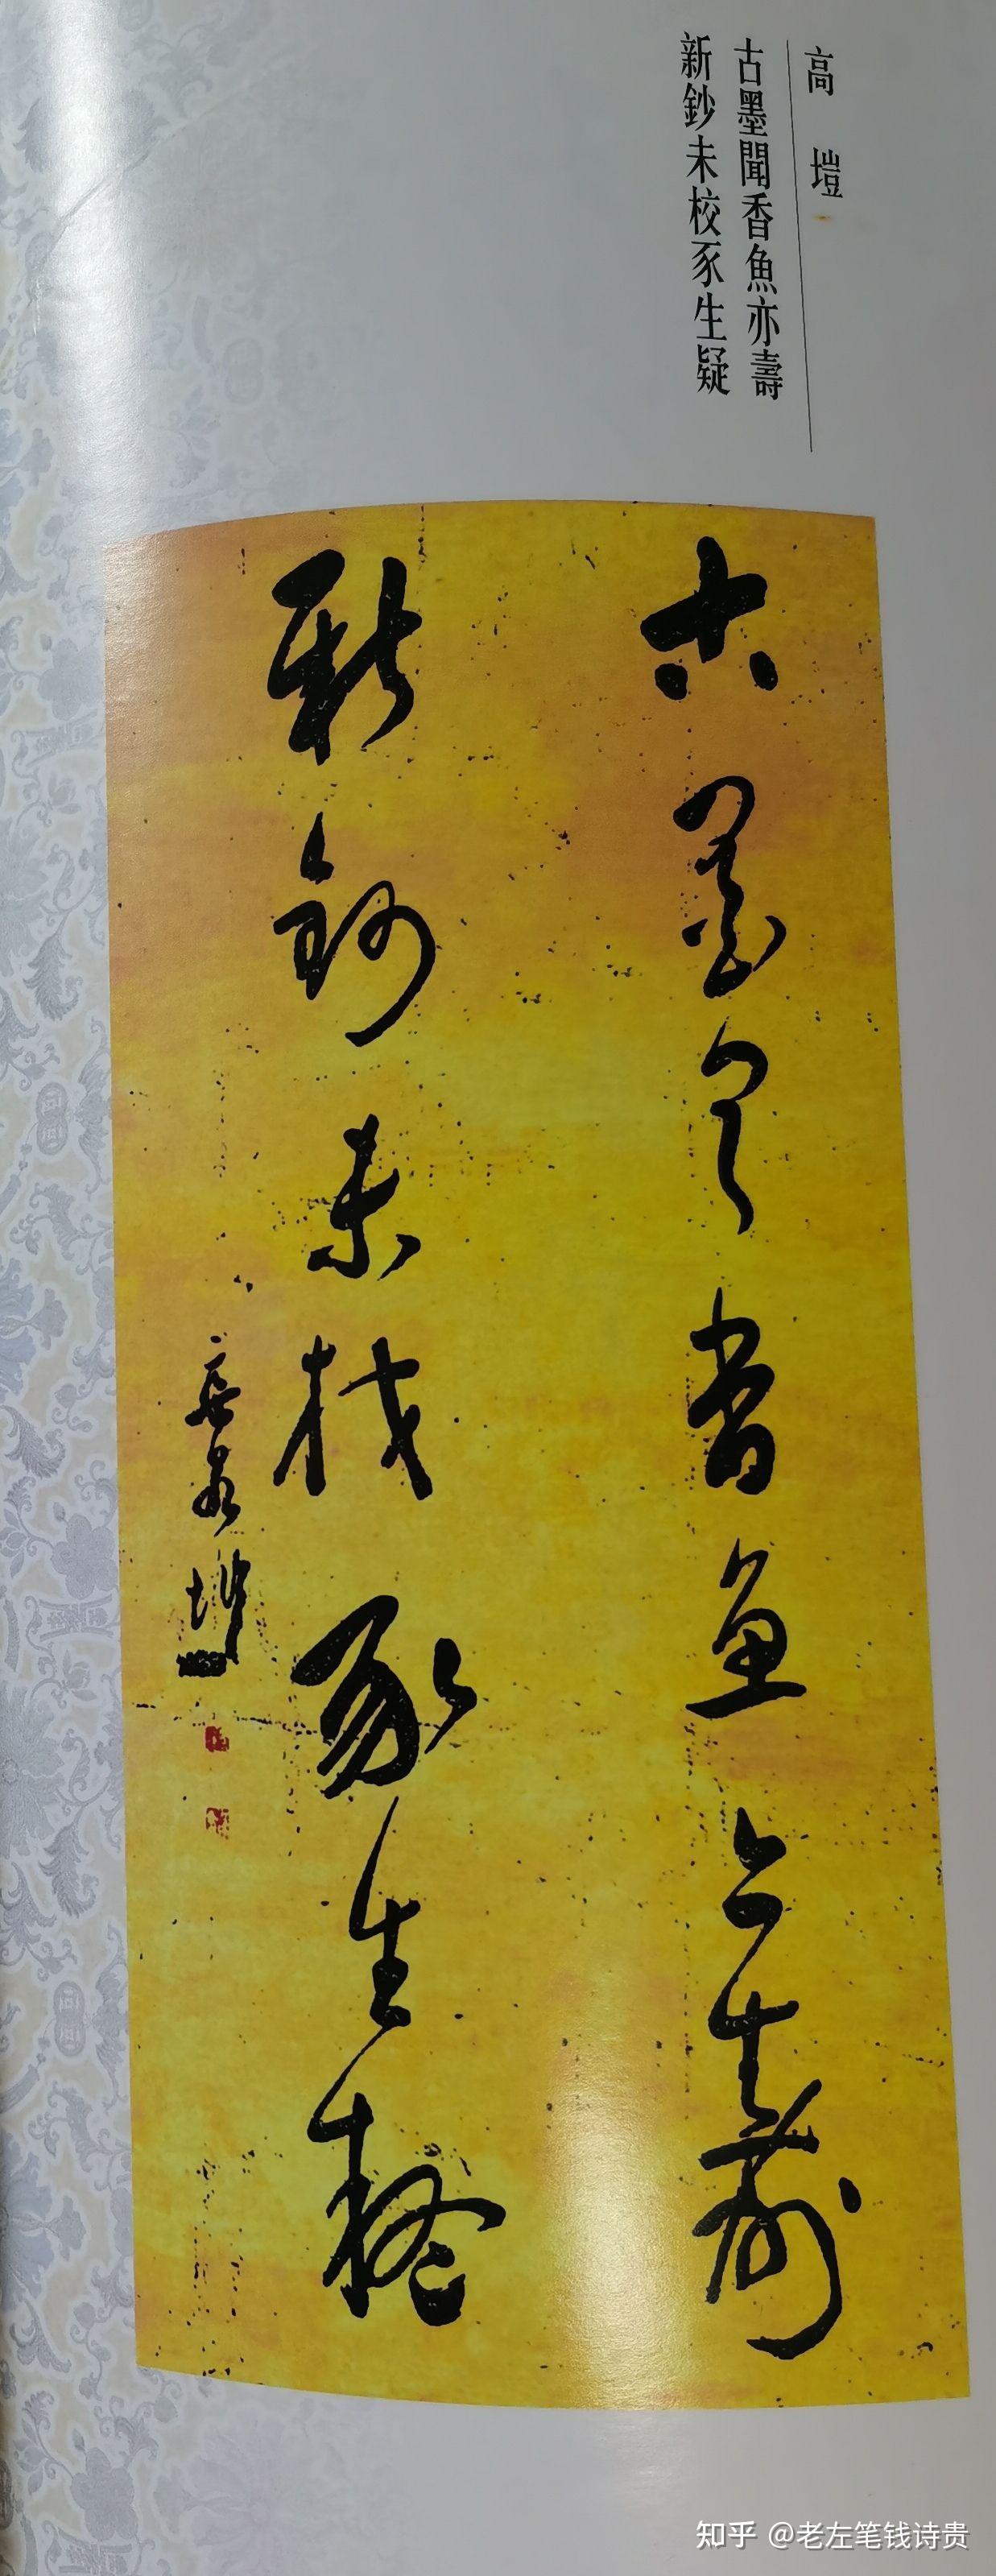 高 塏
古墨聞香魚亦壽
新鈔未校豕生疑
古墨聞香魚亦壽
新鈔未校豕生疑
知乎 @老左笔钱诗贵